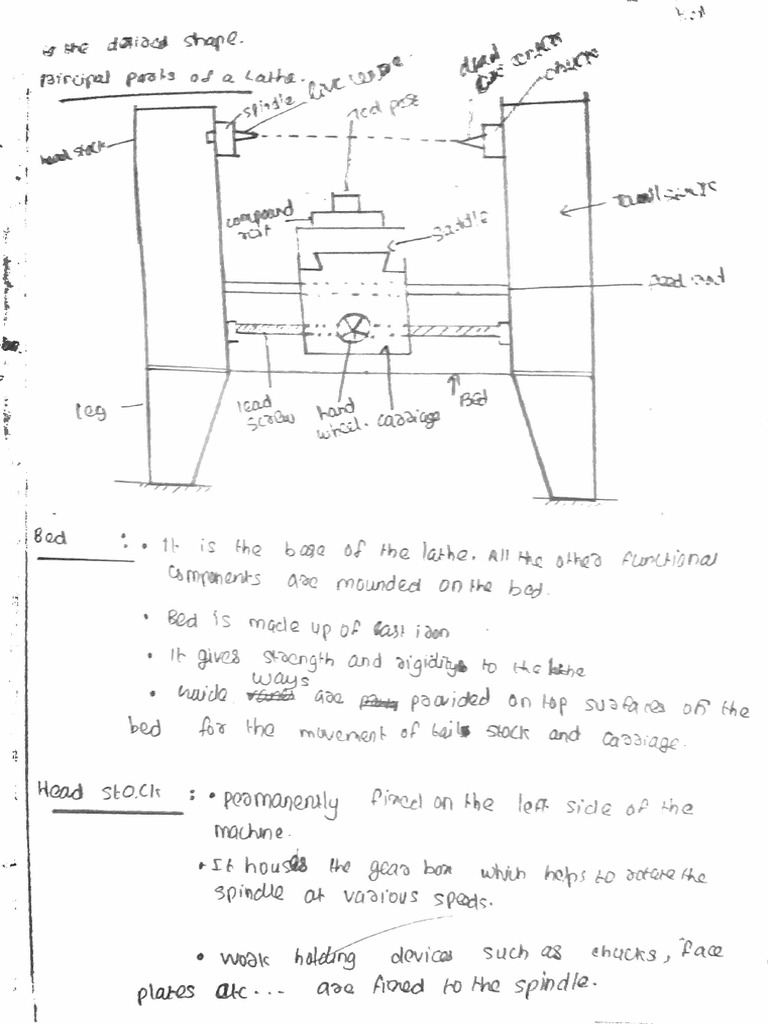 is the desired shape.
Principal parts of a Lathe.
spindle
live centre
tool post
dead
centre
chuck
head stock
compound
rest
saddle
Tail stock
feed rod
leg
lead
screw
hand
wheel.
carriage
Bed
Bed : • It is the base of the lathe. All the other functional
components are mounded on the bed.
• Bed is made up of cast iron
• It gives strength and rigidity to the lathe
ways
• Guide are provided on top surfaces of the
bed for the movement of tail stock and carriage.
Head stock : • permanently fixed on the left side of the
machine.
• It houses the gear box which helps to rotate the
spindle at various speeds.
• work holding devices such as chucks, face
plates etc... are fixed to the spindle.